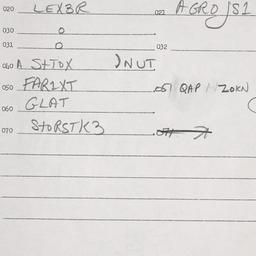 020 LEX3R 021 AGROJS1
030 0
031 0 032
040 A StTOX )NUT
050 FAR1XT 051 QAP / ZOKN
060 GLAT
070 StORSTK3